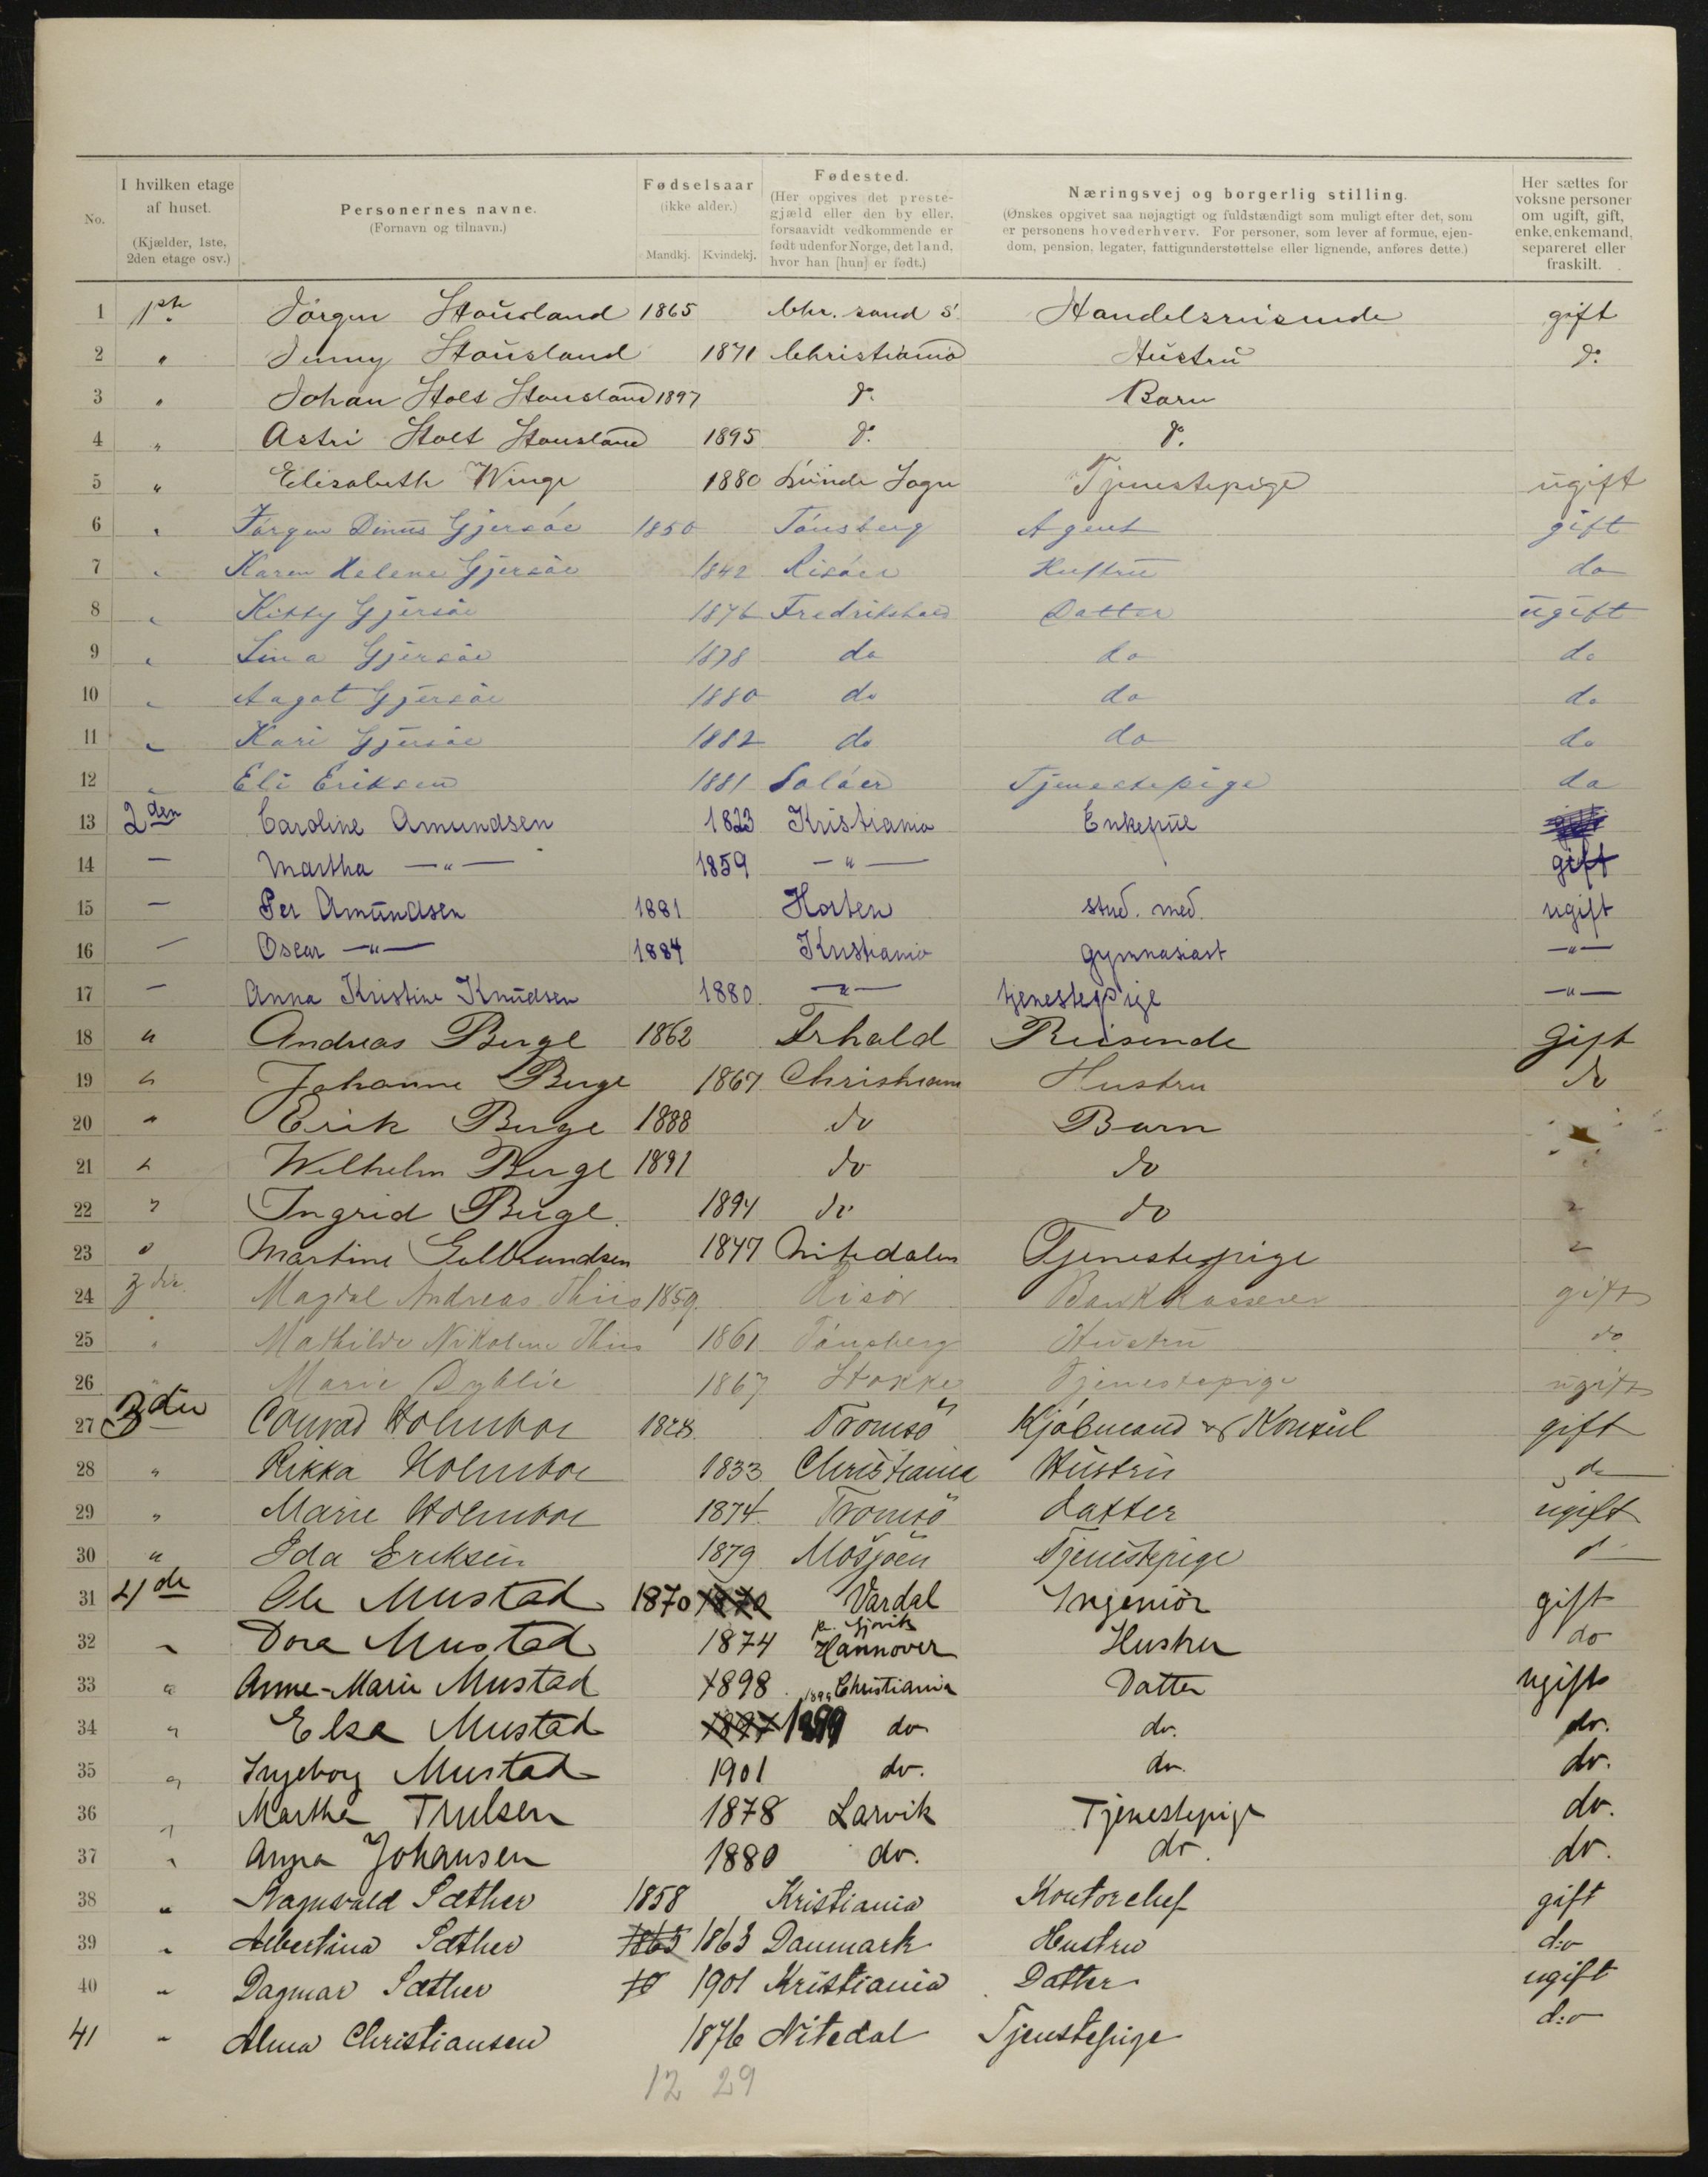 No. I hvilken etage af huset. (Kjælder, 1ste, 2den etage osv.) Personernes navne. (Fornavn og tilnavn.) Fødselsaar (ikke alder.) Mandkj. Kvindekj. Fødested. (Her opgives det prestegjæld eller den by eller, forsaavidt vedkommende er født udenfor Norge, det land, hvor han [hun] er født.) Næringsvej og borgerlig stilling. (Ønskes opgivet saa nøjagtigt og fuldstændigt som muligt efter det, som er personens hovederhverv. For personer, som lever af formue, ejendom, pension, legater, fattigunderstøttelse eller lignende, anføres dette.) Her sættes for voksne personer om ugift, gift, enke, enkemand, separeret eller fraskilt.
1 1ste Jörgen Stousland 1865 Chr. sand S. Handelsreisende gift
2 " Jenny Stousland 1871 Christiania Hustru do
3 " Johan Stolt Stousland 1897 do Barn
4 " Astri Stolt Stousland 1895 do do
5 " Elisabeth Winge 1880 Sogn Tjenestepige ugift
6 " Jörgen Gjersöe 1850 Tönsberg Agent gift
7 " Karen Helene Gjersöe 1842 Risöer Hustru do
8 " Kitty Gjersöe 1876 Fredrikshald Datter ugift
9 " Lina Gjersöe 1878 do do do
10 " Aagot Gjersöe 1880 do do do
11 " Kari Gjersöe 1882 do do do
12 " Eli Eriksen 1881 Solöer Tjenestepige do
13 2den Caroline Amundsen 1823 Kristiania Enkefrue
14 — Martha —"— 1859 —"— gift
15 — Per Amundsen 1881 Horten stud. med. ugift
16 — Oscar —"— 1884 Kristiania gymnasiast —"—
17 — Anna Kristine Knudsen 1880 —"— tjenestepige —"—
18 " Andreas Berge 1862 Frhald Reisende Gift
19 " Johanne Berge 1867 Christiania Hustru do
20 " Erik Berge 1888 do Barn
21 " Wilhelm Berge 1891 do do
22 " Ingrid Berge 1894 do do "
23 " Martine Gulbrandsen 1847 Nitedalen Tjenestepige "
24 3die Magdal Andreas Thiis 1859 Risör Bankkasserer gift
25 " Mathilde Nikoline Thiis 1861 Tönsberg Hustru do
26 " Marie 1867 Stokke Tjenestepige ugift
27 3die Conrad Holmboe 1828 Tromsö Kjöbmand & Konsul gift
28 " Rikka Holmboe 1833 Christiania Hustru do
29 " Marie Holmboe 1874 Tromsö datter ugift
30 " Ida Eriksen 1879 Mosjöen Tjenestepige do
31 4de Ole Mustad 1870 1870 Vardal p. Gjøvik Ingeniör gift
32 " Dora Mustad 1874 Hannover Hustru do
33 " Anne-Marie Mustad 1898 1898 Christiania Datter ugift
34 " Else Mustad 1897 1899 do do. do.
35 " Ingeborg Mustad 1901 do. do. do.
36 " Martha Trulsen 1878 Larvik Tjenestepige do.
37 " Anna Johansen 1880 do. do. do.
38 " Ragnvald Sæther 1858 Kristiania Kontorchef gift
39 " Albertina Sæther 1865 1863 Danmark Hustru d:o
40 " Dagmar Sæther 1901 Kristiania Datter ugift
41 " Alma Christiansen 1876 Nitedal Tjenstepige d:o
12 29